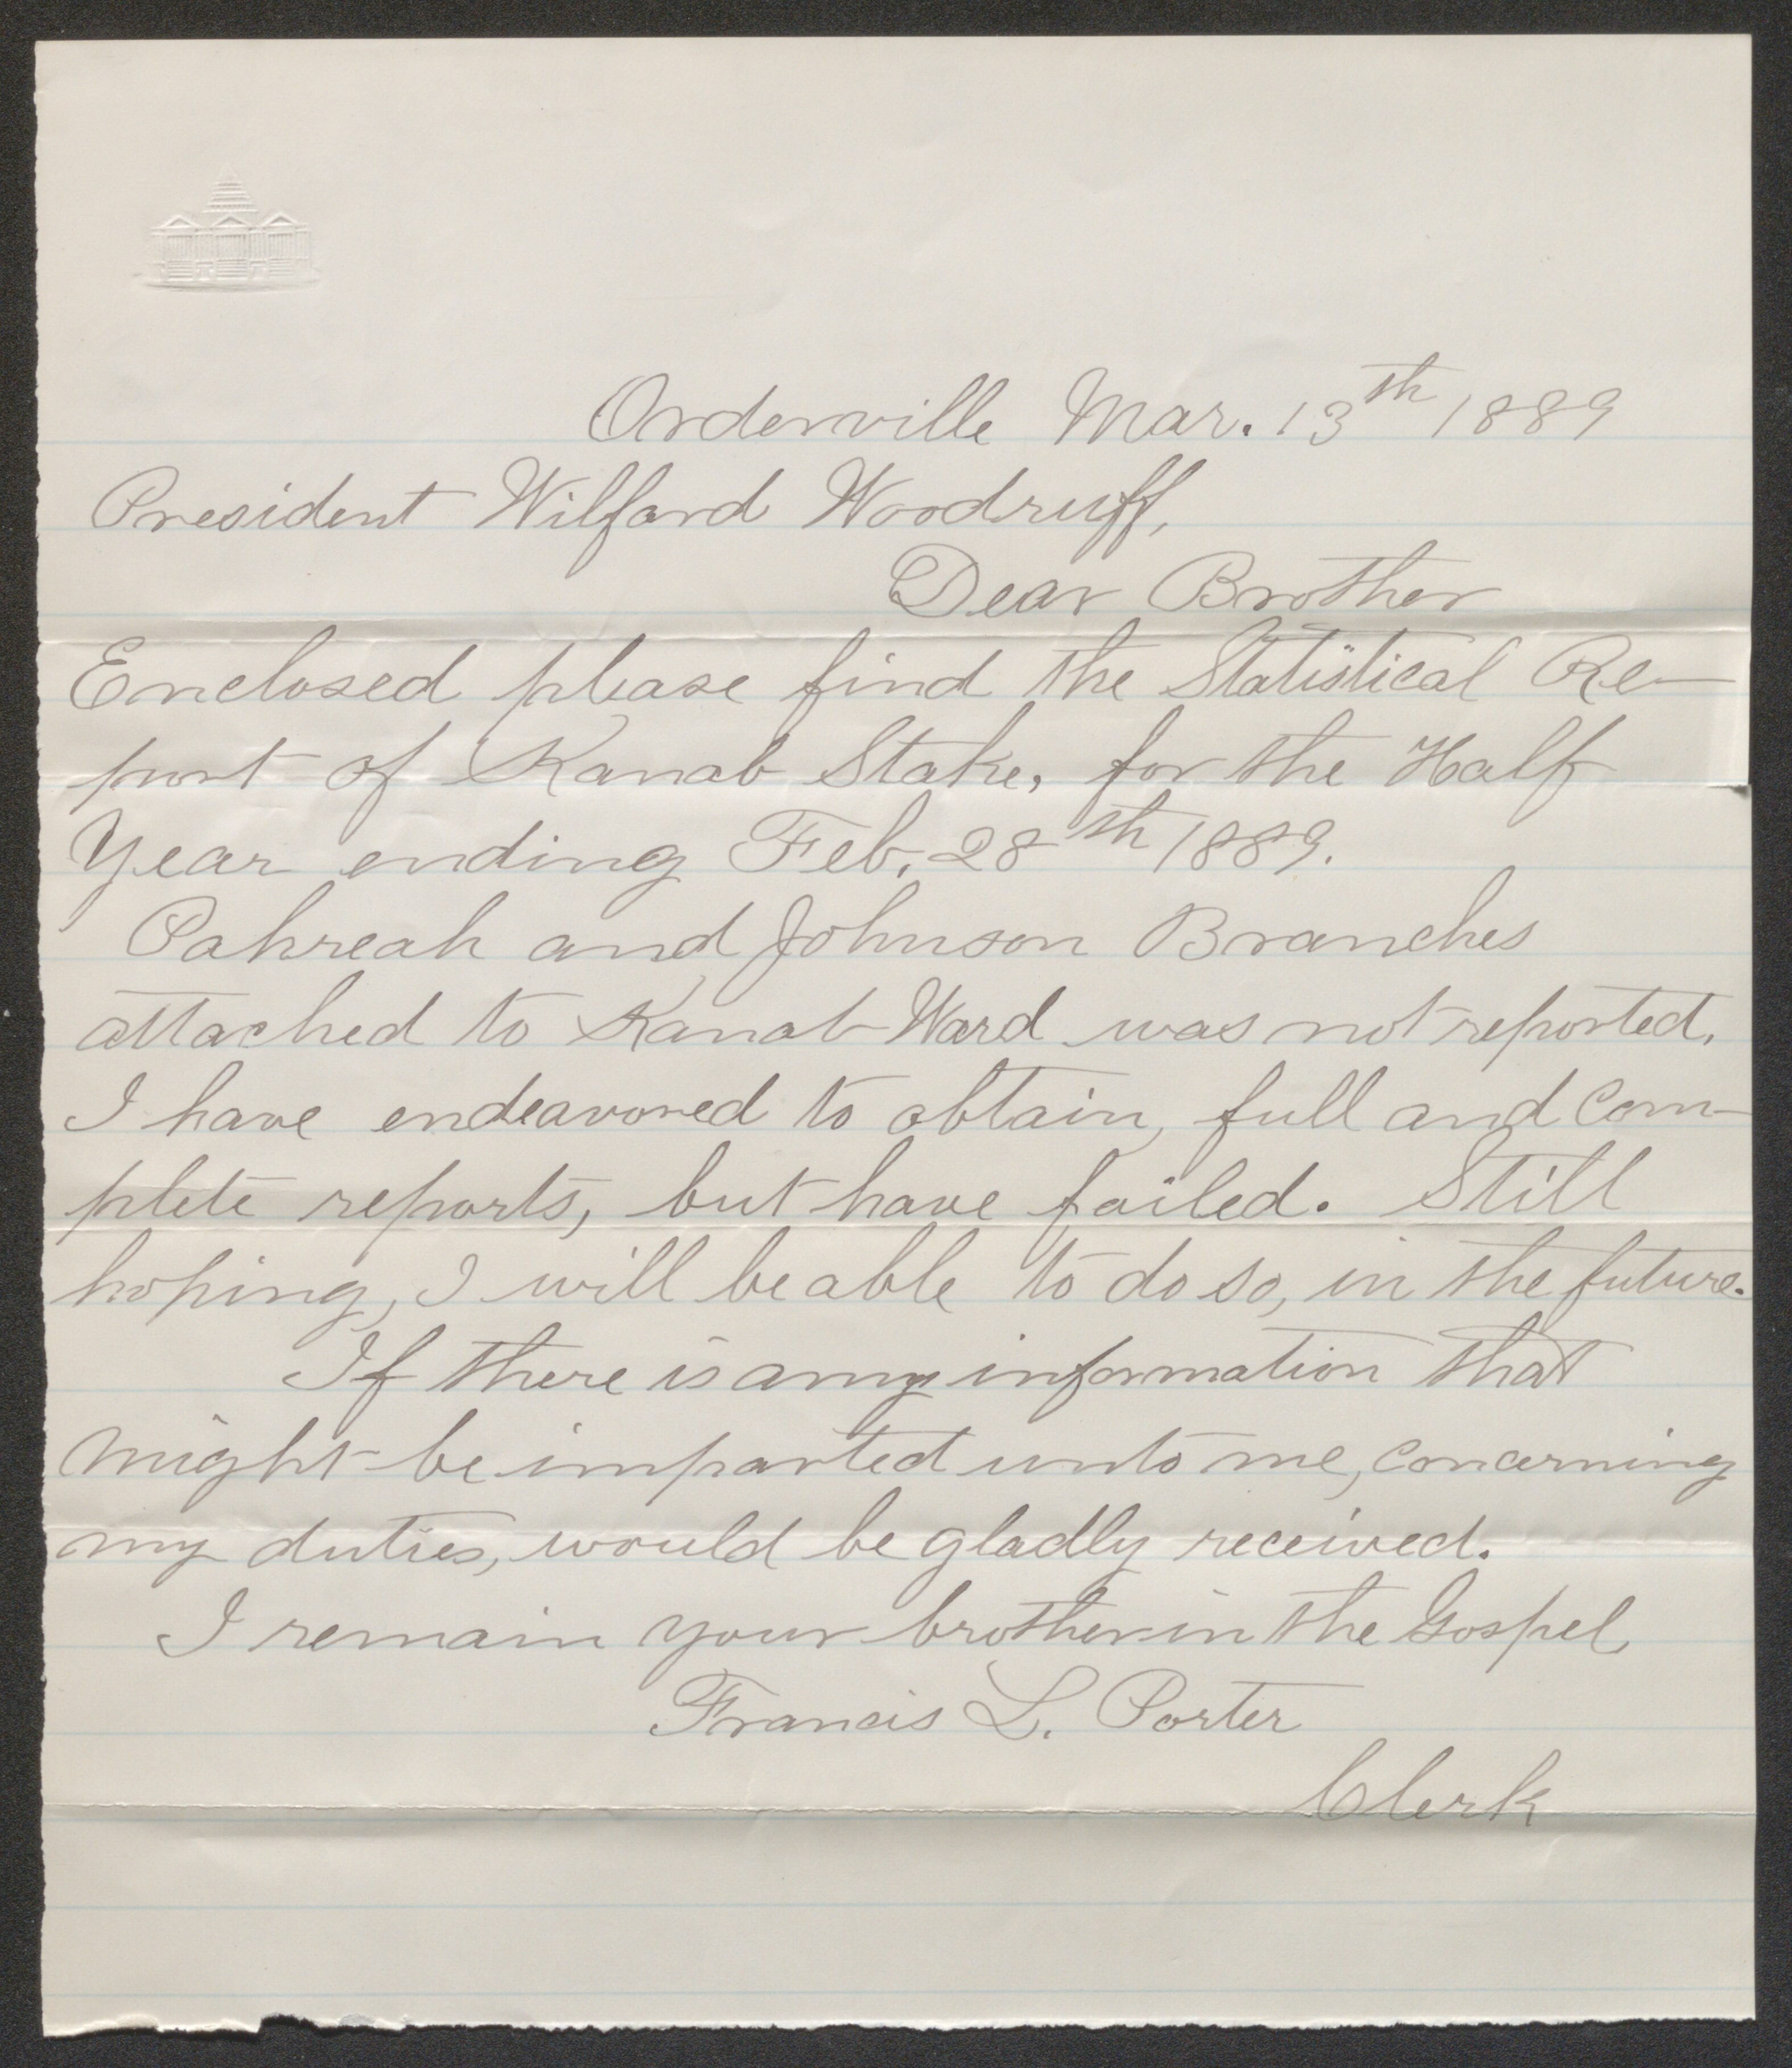 Orderville Mar. 13th 1889
President Wilford Woodruff,
Dear Brother
Enclosed please find the Statistical Re-
port of Kanab Stake, for the Half
Year ending Feb. 28th 1889.
Pahreah and Johnson Branches
attached to Kanab Ward was not reported.
I have endeavored to obtain, full and com-
plete reports, but have failed. Still
hoping, I will be able to do so, in the future.
If there is any information that
might be imparted unto me, concerning
my duties, would be gladly received.
I remain your brother in the Gospel,
Francis L. Porter
Clerk